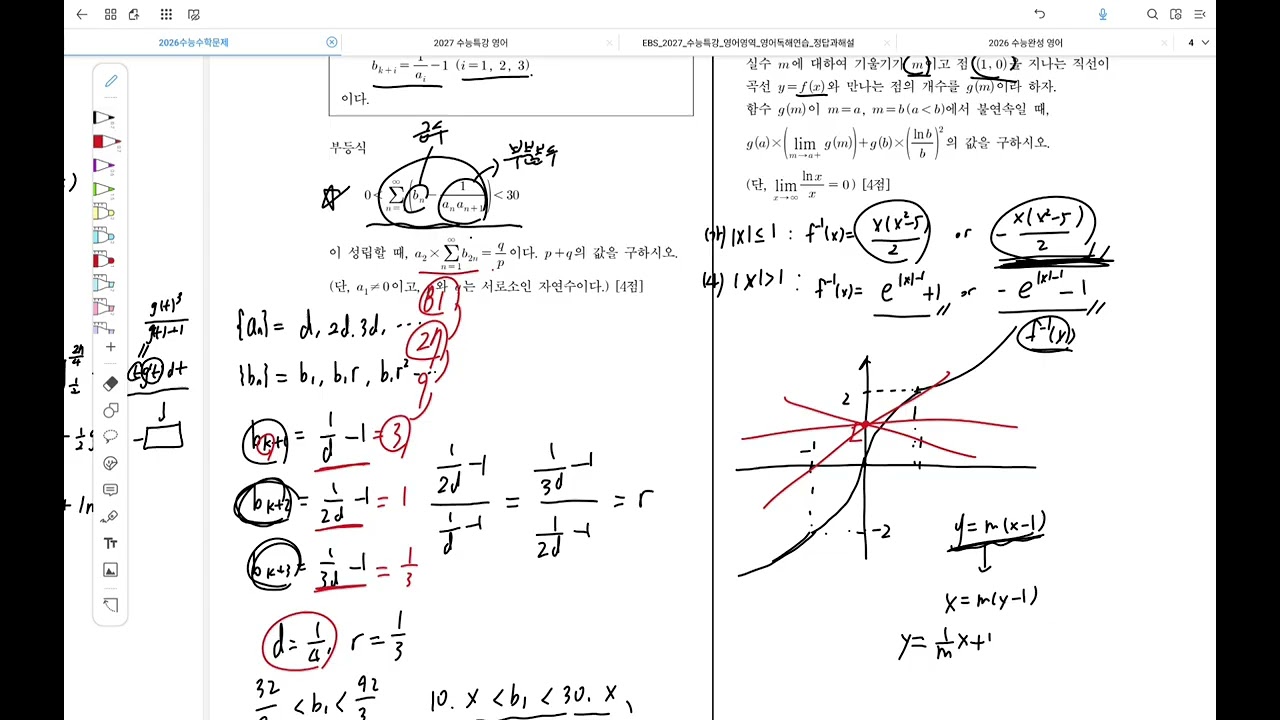 2026수능수학문제
2027 수능특강 영어
EBS_2027_수능특강_영어영역_영어독해연습_정답과해설
2026 수능완성 영어
4
b_{k+i} = 1/a_i − 1 (i=1, 2, 3).
이다.
부등식
급수
부분분수
0 < Σ_{n=}^{∞} (b_n − 1/(a_n a_{n+1})) < 30
이 성립할 때, a_2 × Σ_{n=1}^{∞} b_{2n} = q/p 이다. p+q의 값을 구하시오.
(단, a_1≠0이고, 와 는 서로소인 자연수이다.) [4점]
81
27
9
{a_n} = d, 2d, 3d, ⋯
{b_n} = b_1, b_1r, b_1r² ⋯
b_{k+1} = 1/d − 1 = 3
b_{k+2} = 1/2d − 1 = 1
b_{k+3} = 1/3d − 1 = 1/3
(1/2d − 1)/(1/d − 1) = (1/3d − 1)/(1/2d − 1) = r
d = 1/4, r = 1/3
< b_1 < 92/3
10. x < b_1 < 30. x
실수 m에 대하여 기울기가 m이고 점 (1, 0)을 지나는 직선이
곡선 y=f(x)와 만나는 점의 개수를 g(m)이라 하자.
함수 g(m)이 m=a, m=b(a<b)에서 불연속일 때,
g(a)×(lim_{m→a+} g(m))+g(b)×(ln b/b)²의 값을 구하시오.
(단, lim_{x→∞} ln x/x = 0) [4점]
(가) |x| ≤ 1 : f⁻¹(x) = x(x²−5)/2 or − x(x²−5)/2
(나) |x| > 1 : f⁻¹(x) = e^{|x|−1}+1 or − e^{|x|−1} − 1
f⁻¹(x)
2
1
−1
1
−2
y = m(x−1)
x = m(y−1)
y = 1/m x + 1